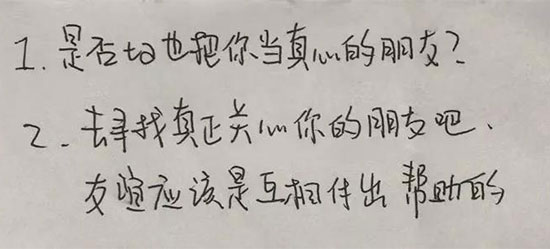 1. 是否ta也把你当真心的朋友?
2. 去寻找真正关心你的朋友吧、
友谊应该是互相付出 帮助的